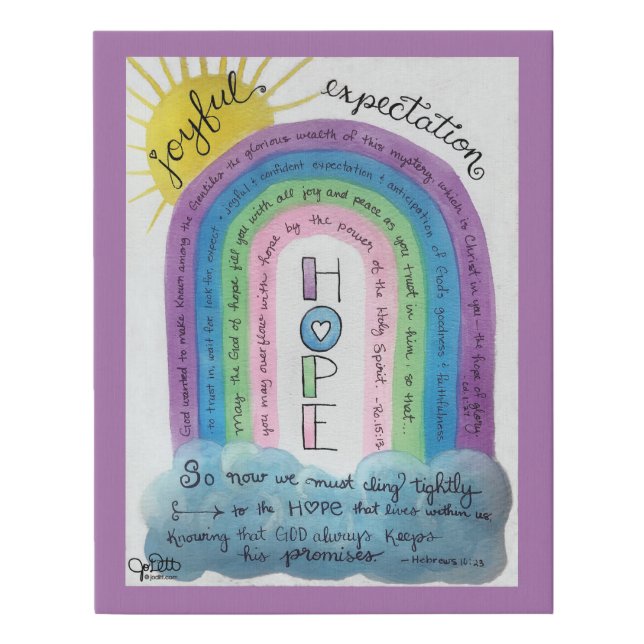 joyful expectation
God wanted to make known among the Gentiles the glorious wealth of this mystery, which is Christ in you — the hope of glory. Col. 1:27
to trust in, wait for, look for, expect + joyful + confident expectation + anticipation of God's goodness + faithfulness
May the God of hope fill you with all joy and peace as you trust in him, so that...
you may overflow with hope by the power of the Holy Spirit. - Ro. 15:13
HOPE
So now we must cling tightly
to the HOPE that lives within us,
Knowing that GOD always keeps
his promises. - Hebrews 10:23
Jo Ditt
© joditt.com